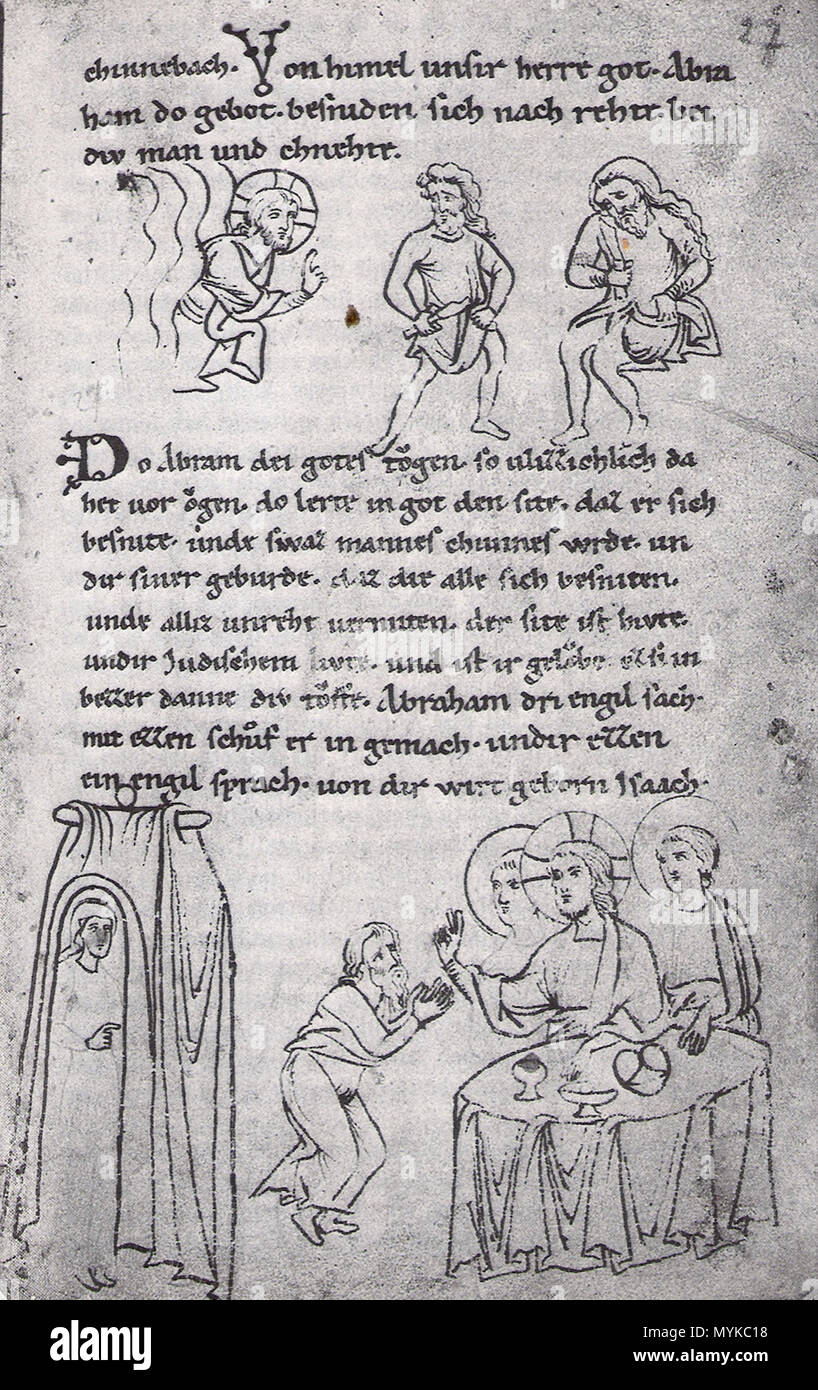 27
chinnebach. Von himel unsir herre got. Abra
ham do gebot. besniden sich nach rehte. bei
div man und chnehte.
Do Abram dei gotes tǒgen. so
 da
het vor ǒgen. do lerte in got den site. daz er sich
besnite. unde swaz mannes chunnes wrde. un
dir siner geburde. daz die alle sich besniten.
unde alliz unreht vermiten. der site ist hivte.
undir Judischem livte. und ist ir gelǒbe. ez si in
bezzer danne div tǒffe. Abraham dri engil sach.
mit ezzen schůf er in gemach. undir ezzen
ein engil sprach. von dir wirt geborn Isaach.
alamy
alamy
alamy
a
a
a
a
alamy
Image ID: MYKC18
www.alamy.com